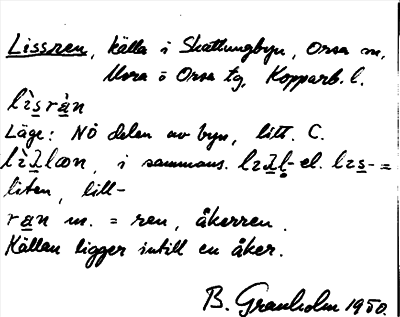 Lissren, källa i Skattungbyn, Orsa sn,
Mora o Orsa tg, Kopparb. l.
lìsràn
Läge: NÖ delen av byn, litt. C.
i sammans. el. lɪs- =
liten, lill-
ran m. = ren, åkerren.
Källan ligger intill en åker.
B. Granholm 1950.